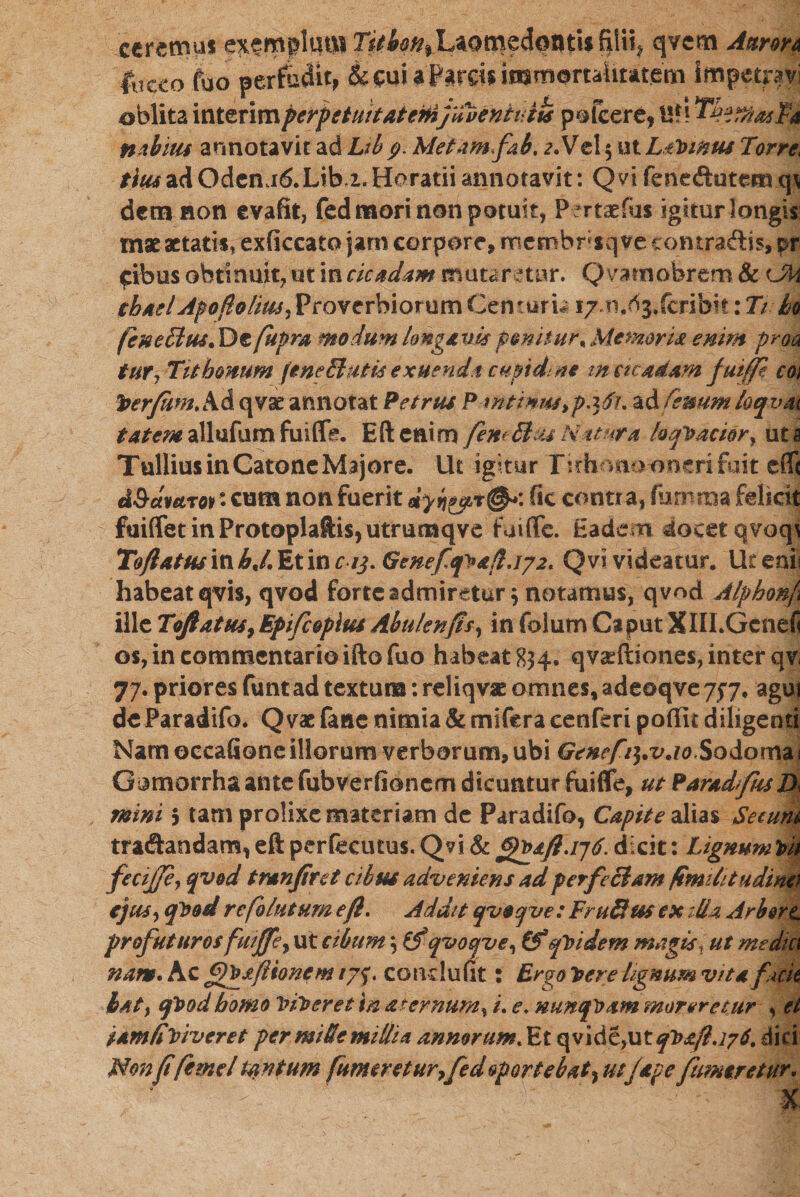 ceremus exemplum Tithon, Laomedontis filii, qvem Aurora
succo suo perfudit, & cui a Parcis immortalitatem impetravi
oblita interim perpetuitatem juventutis poscere, uti Thomas Fa
nabius annotavit ad Lib 9. Metam. fab. 2. Vel; ut Lævinus Torre
tius ad Oden. 16. Lib. 2. Horatii annotavit: Qvi senectutem qv
dem non evasit, sed mori non potuit, Pertæsus igitur longis
mæ ætatis, exsiccato jam corpore, membrisqve contractis, pr
cibus obtinuit, ut in cicadam mutaretur. Qvamobrem & Mi
chael Apostolius, Proverbiorum Centuria 17. n. 63. scribit: Ti ho
senectus. De supra modum longævis ponitur. Memoriæ enim prod
tur, Tithonum senectutis exuendæ cupidine in cicadam fuisse co
versum. Ad qvæ annotat Petrus Pantinus, p. 361. ad senum loqvac
tatem allusum fuisse. Est enim senectus Natura loqvacior, ut a
Tullius in Catone Majore. Ut igitur Tithono oneri fuit esse
ἀθάνατον: cum non fuerit ἀγήρατ@: sic contra, summa felicit
fuisset in Protoplastis, utrumqve fuisse. Eadem docet qvoqv
Tostatus in h. l. Et in c. 13. Genes. qvæst. 172. Qvi videatur. Ut eni
habeat qvis, qvod forte admiretur; notamus, qvod Alphonsi
ille Tostatus, Episcopius Abulensis, in solum Caput XIII. Genes
os, in commentario isto suo habeat 834. qvæstiones, inter qv
77. priores sunt ad textum: reliqvæ omnes, adeoqve 757. agui
de Paradiso. Qvæ sane nimia & misera censeri possit diligenti
Nam occasione illorum verborum, ubi Genes 13. v. 10. Sodoma
Gomorrha ante subversionem dicuntur fuisse, ut Paradisus D
mini; tam prolixe materiam de Paradiso, Capite alias Secund
tractandam, est persecutus. Qvi & Qvæst. 176. dicit: Lignum vit
fecisse, qvod transiret cibus adveniens ad perfectam similitudine
ejus, qvod resolutum est. Addit qvoqve: Fructus ex illa Arbore
profuturos fuisse, ut cibum; & qvoqve, & qvidem magis, ut medici
nam. Ac Qvæstionem 175. conclusit: Ergo vere lignum vitæ facie
bat, qvod homo viveret in æternum, i. e. nunqvam moreretur, et
jamsi viveret per mille millia annorum. Et qvide, ut qvæst. 176. dici
Non si semel tantum sumeretur, sed oportebat, ut sæpe sumeretur.
X